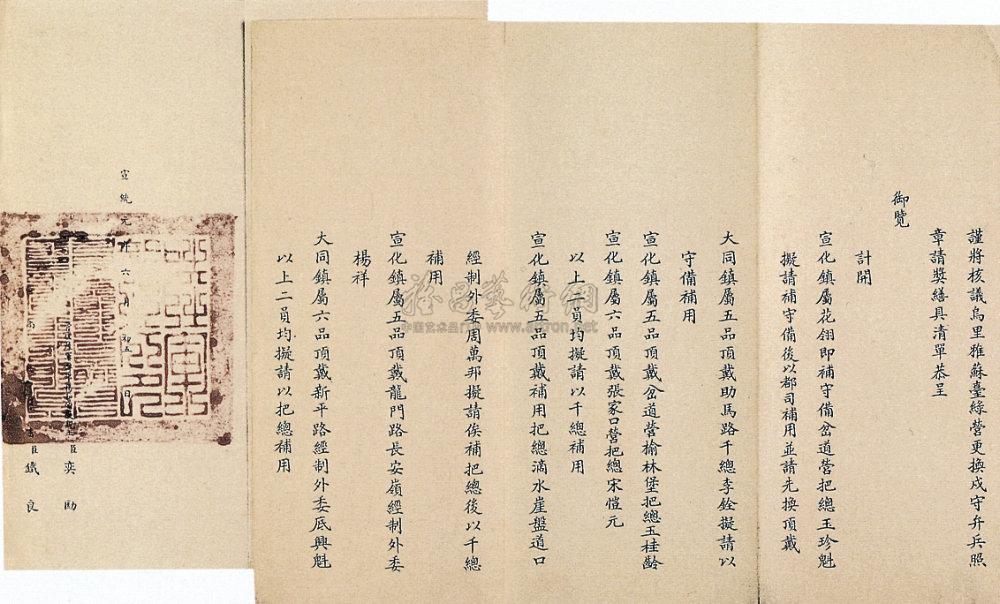 謹將核議烏里雅蘇臺綠營更換戍守弁兵照
章請獎繕具清單恭呈
御覽
計開
宣化鎮屬花翎即補守備岔道營把總王珍魁
擬請補守備後以都司補用並請先換頂戴
大同鎮屬五品頂戴助馬路千總李銓擬請以
守備補用
宣化鎮屬五品頂戴岔道營榆林堡把總王桂齡
宣化鎮屬六品頂戴張家口營把總宋愷元
以上二員均擬請以千總補用
宣化鎮屬五品頂戴補用把總滴水崖盤道口
經制外委周萬邦擬請俟補把總後以千總
補用
宣化鎮屬五品頂戴龍門路長安嶺經制外委
楊祥
大同鎮屬六品頂戴新平路經制外委底興魁
以上二員均擬請以把總補用
宣統元年六月初五日
臣奕劻
臣鐵良